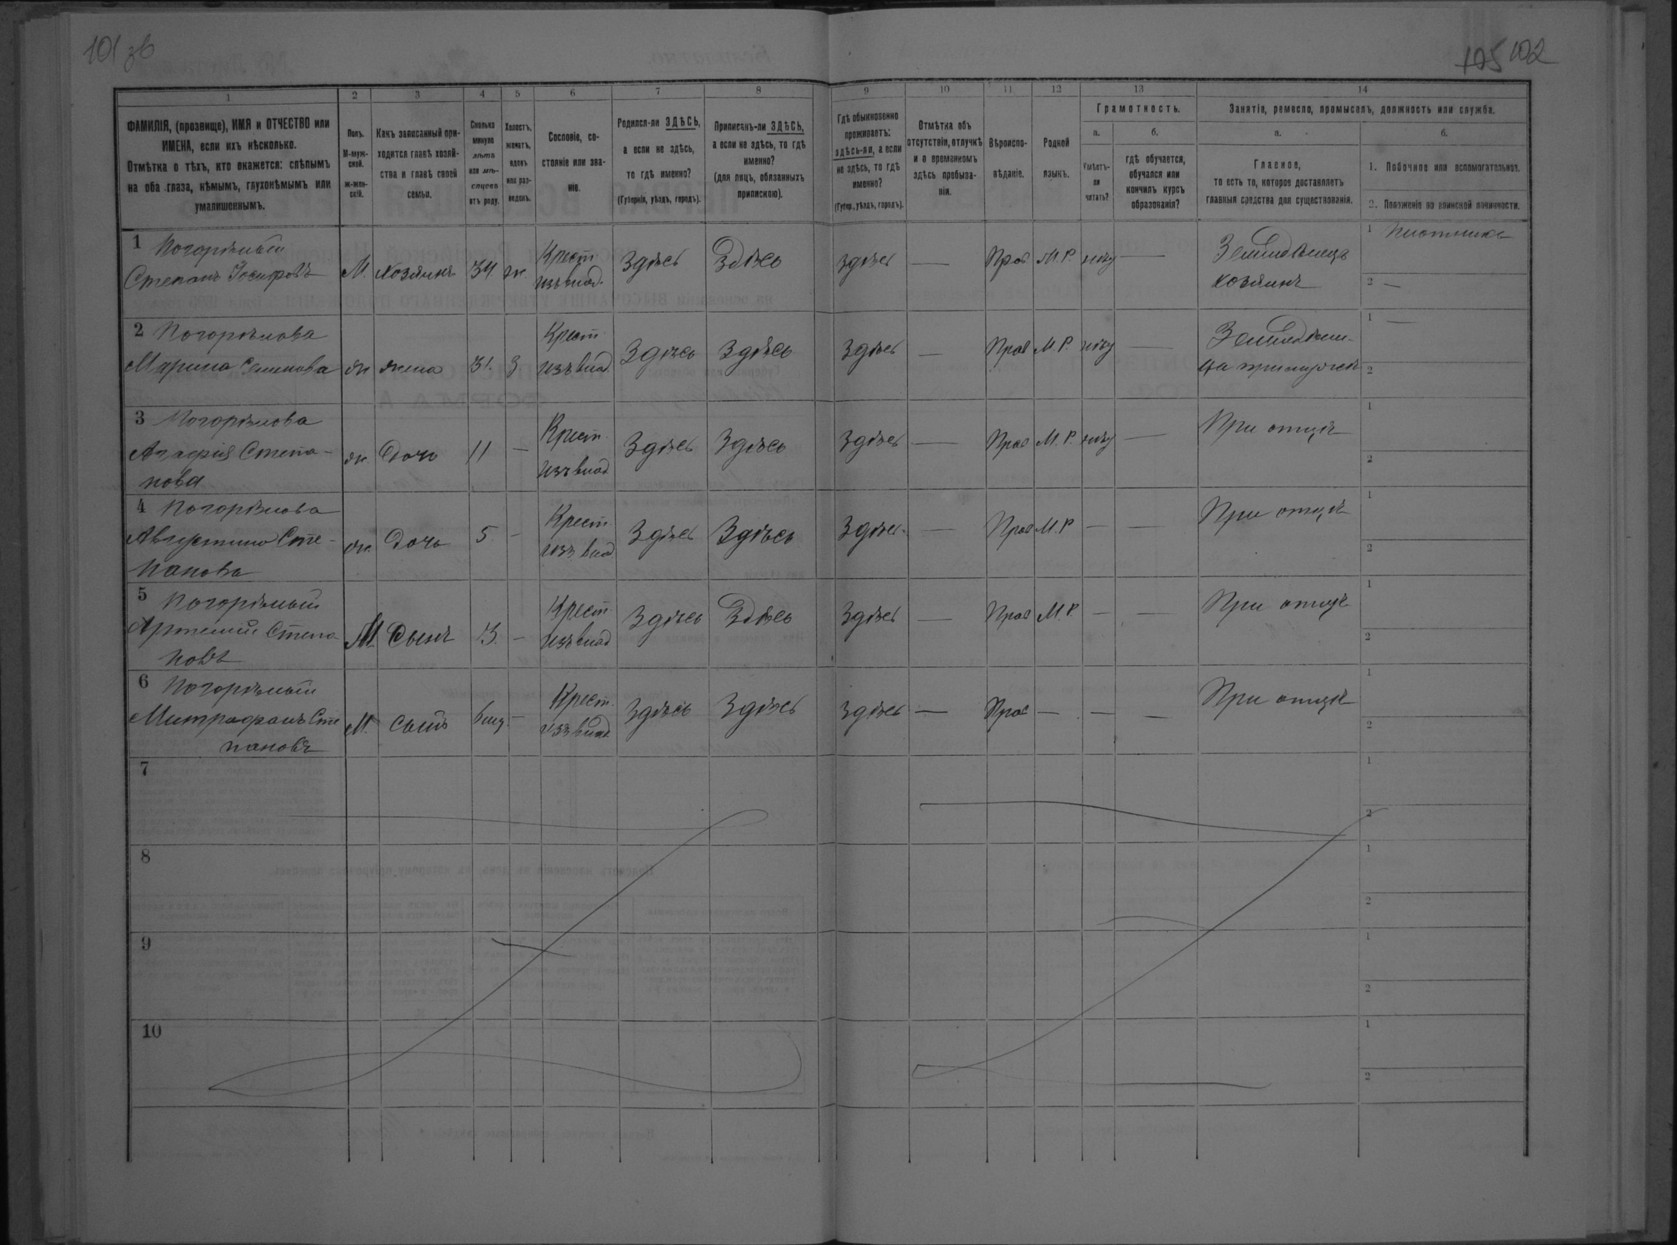 101 зв
105 102
1
2
3
4
5
6
7
8
9
10
11
12
13
14
ФАМИЛІЯ, (прозвище), ИМЯ и ОТЧЕСТВО или
ИМЕНА, если ихъ нѣсколько.
Отмѣтка о тѣхъ, кто окажется: слѣпымъ
на оба глаза, нѣмымъ, глухонѣмымъ или
умалишеннымъ.
Полъ.
М-муж-
ской.
ж-жен-
скій.
Какъ записанный при-
ходится главѣ хозяй-
ства и главѣ своей
семьи.
Сколько
минуло
лѣтъ
или мѣ-
сяцевъ
отъ роду.
Холостъ,
женатъ,
вдовъ
или раз-
веденъ.
Сословіе, со-
стояніе или зва-
ніе.
Родился-ли ЗДѢСЬ,
а если не здѣсь,
то гдѣ именно?
(Губернія, уѣздъ, городъ).
Приписанъ-ли ЗДѢСЬ,
а если не здѣсь, то гдѣ
именно?
(для лицъ, обязанныхъ
припискою).
Гдѣ обыкновенно
проживаетъ:
здѣсь-ли, а если
не здѣсь, то гдѣ
именно?
(Губер., уѣздъ, городъ).
Отмѣтка объ
отсутствіи, отлучкѣ
и о временномъ
здѣсь пребыва-
ніи.
Вѣроиспо-
вѣданіе.
Родной
языкъ.
Грамотность.
а.
б.
Умѣетъ-
ли
читать?
гдѣ обучается,
обучался или
кончилъ курсъ
образованія?
Занятія, ремесло, промыселъ, должность или служба.
а.
б.
Главное,
то есть то, которое доставляетъ
главныя средства для существованія.
1. Побочное или вспомогательное.
2. Положеніе по воинской повинности.
1 Погорѣлый
Степанъ Іосифовъ М. хозяинъ 34 ж. Крест. изъ влад. Здѣсь Здѣсь здѣсь — Прав М.Р. нѣту — Земледѣлецъ хозяинъ 1 Плотникъ 2 —
2 Погорѣлова
Марина Семенова ж жена 31. З. Крест. изъ влад Здѣсь Здѣсь Здѣсь — Прав М.Р. нѣту — 1 — 2
3 Погорѣлова
Агафія Степа-
нова ж. Дочь 11 — Крест. изъ влад Здѣсь Здѣсь Здѣсь — Прав М.Р. нѣту — При отцѣ 1 2
4 Погорѣлова
Сте-
панова ж. Дочь 5 — Крест изъ влад Здѣсь Здѣсь Здѣсь. — Прав М.Р — — При отцѣ 1 2
5 Погорѣлый
Артемій Степа
новъ М. Сынъ 3. — Крест изъ влад Здѣсь Здѣсь Здѣсь — Прав М.Р — — При отцѣ 1 2
6 Погорѣлый
Митрофанъ Сте
пановъ М. сынъ — Крест. изъ влад. Здѣсь Здѣсь Здѣсь — Прав — — — При отцѣ 1 2
7 1 2
8 1 2
9 1 2
10 1 2